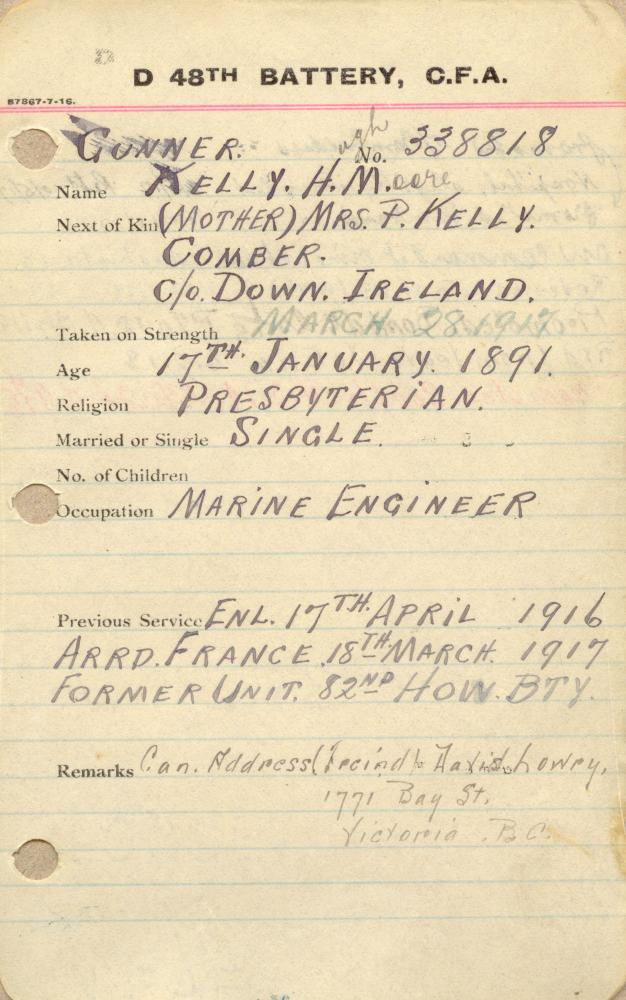 D 48TH BATTERY, C.F.A.
B7867-7-16.
GUNNER. No. 338818
ugh
Name KELLY. H. Moore
Next of Kin (MOTHER) MRS. P. KELLY.
COMBER.
C/o. DOWN. IRELAND.
Taken on Strength MARCH 28 1917
Age 17TH. JANUARY. 1891.
Religion PRESBYTERIAN.
Married or Single SINGLE.
No. of Children
Occupation MARINE ENGINEER
Previous Service ENL. 17TH. APRIL 1916
ARRD. FRANCE 18TH MARCH. 1917
FORMER UNIT. 82ND HOW. BTY.
Remarks Can. Address (Friend) David Lowry,
1771 Bay St,
Victoria. B.C.